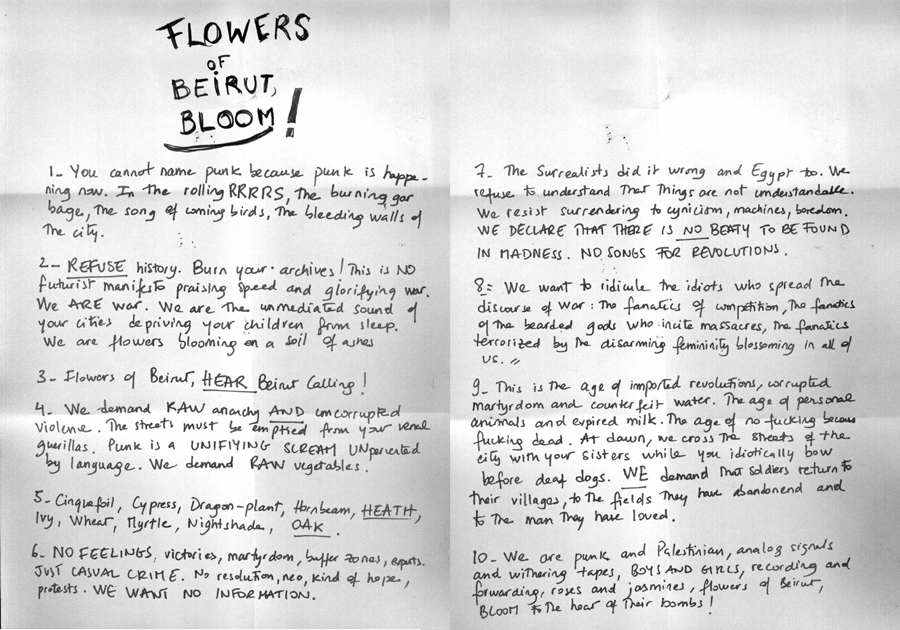 FLOWERS
OF
BEIRUT,
BLOOM!
1- You cannot name punk because punk is happe-
ning now. In the rolling RRRRS, The burning gar
bage, The song of coming birds, The bleeding walls of
The city.
2- REFUSE history. Burn your archives! This is NO
futurist manifesto praising speed and glorifying war.
We ARE war. We are the unmediated sound of
your cities depriving your children from sleep.
We are flowers blooming on a soil of ashes
3- Flowers of Beirut, HEAR Beirut Calling!
4- We demand RAW anarchy AND uncorrupted
violence. The streets must be emptied from your venal
guerillas. Punk is a UNIFIYING SCREAM UNperverted
by language. We demand RAW vegetables.
5- Cinquefoil, Cypress, Dragon-plant, Hornbeam, HEATH,
Ivy, Wheat, Myrtle, Nightshade, OAK.
6- NO FEELINGS, victories, martyrdom, buffer zones, experts.
JUST CASUAL CRIME. No resolution, neo, kind of hope,
protests. WE WANT NO INFORMATION.
7- The Surrealists did it wrong and Egypt too. We
refuse to understand That Things are not understandable.
We resist surrendering to cynicism, machines, boredom.
WE DECLARE THAT THERE IS NO BEATY TO BE FOUND
IN MADNESS. NO SONGS FOR REVOLUTIONS.
8= We want to ridicule the idiots who spread The
discourse of war: The fanatics of competition, The fanatics
of the bearded gods who incite massacres, the fanatics
terrorized by the disarming femininity blossoming in all of
us.
9- This is the age of imported revolutions, corrupted
martyrdom and counterfeit water. The age of personal
animals and expired milk. The age of no fucking because
fucking dead. At dawn, we cross The streets of the
city with your sisters while you idiotically bow
before deaf dogs. WE demand That soldiers return to
Their villages, to The fields They have abandonend and
to The man They have loved.
10- We are punk and Palestinian, analog signals
and withering tapes, BOYS AND GIRLS, recording and
forwarding, roses and jasmines, flowers of Beirut,
BLOOM to The hear of Their bombs!